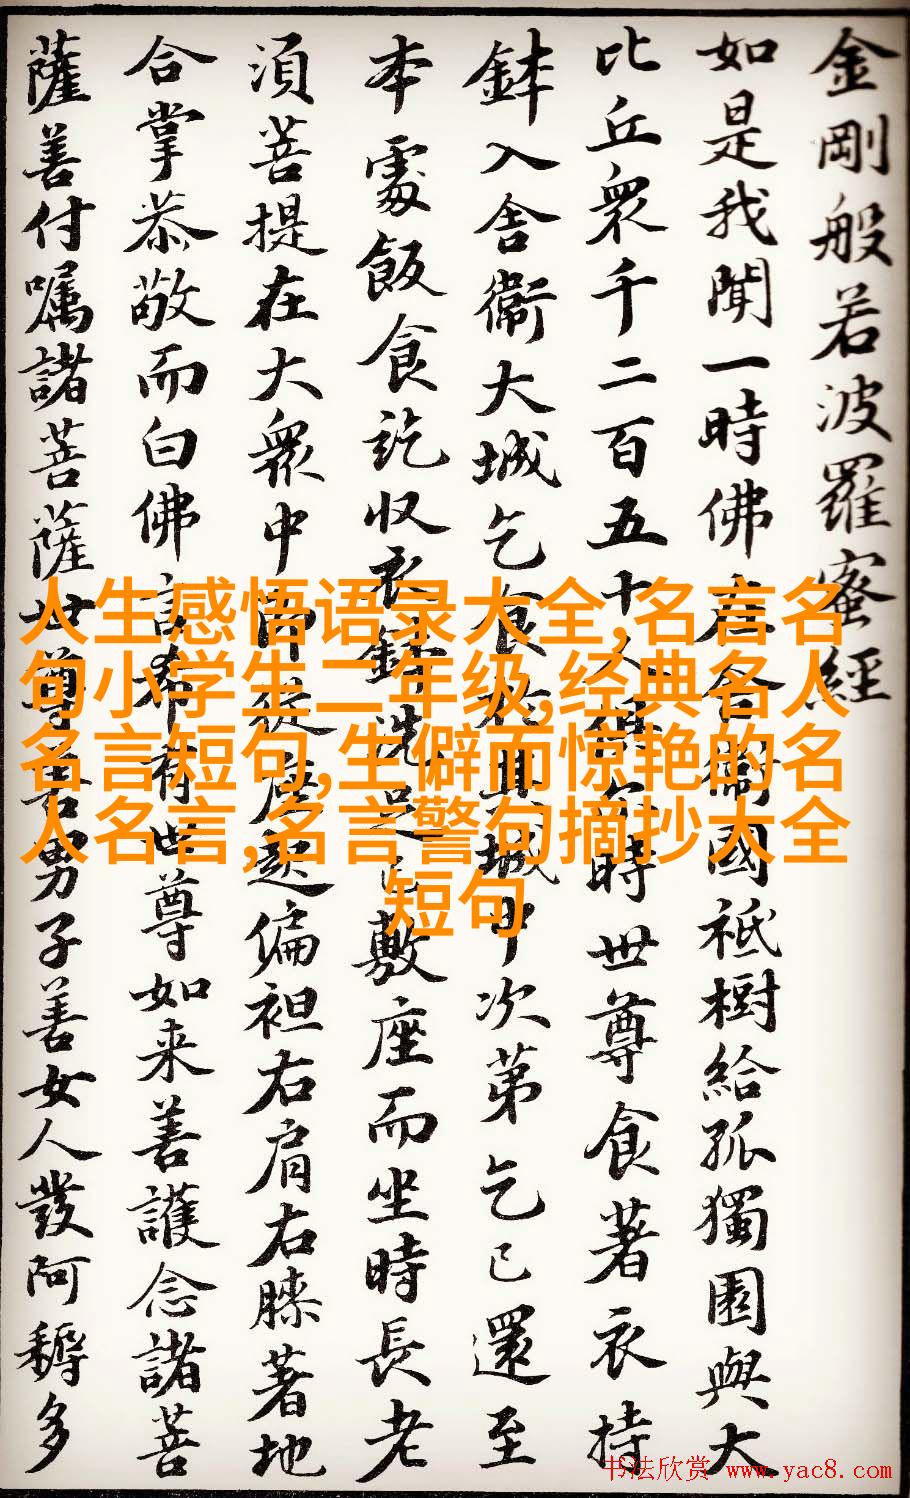 金剛般若波羅蜜經
如是我聞一時佛在舍衛國祇樹給孤獨園與大
比丘衆千二百五十人俱尒時世尊食著衣持
鉢入舍衛大城乞食於其城中次第乞已還至
本處飯食訖收衣鉢洗足已敷座而坐時長老
須菩提在大衆中即從座起偏袒右肩右膝著地
合掌恭敬而白佛言希有世尊如来善護念諸菩
薩善付囑諸菩薩世尊善男子善女人發阿耨多
人生感悟语录大全,名言名
句小学生二年级,经典名人
名言短句,生僻而惊艳的名
人名言,名言警句摘抄大全
短句
书法欣赏 www.yac8.com